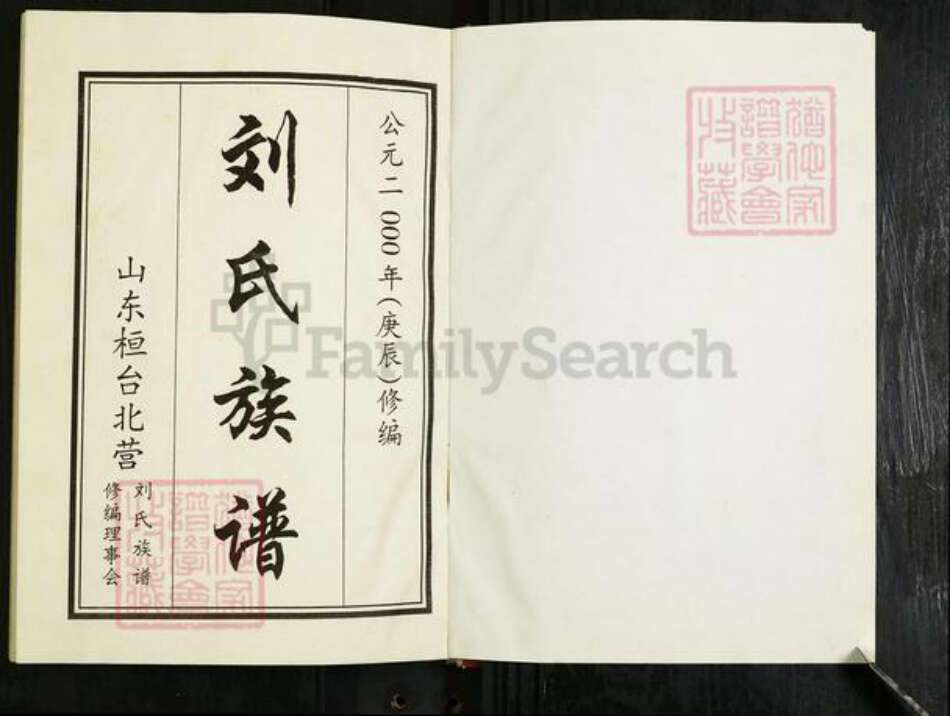 公元二000年(庚辰)修编
刘氏族谱
山东桓台北营
刘氏族谱
修编理事会
猶他家
譜學會
收藏
猶他家
譜學會
收藏
FamilySearch